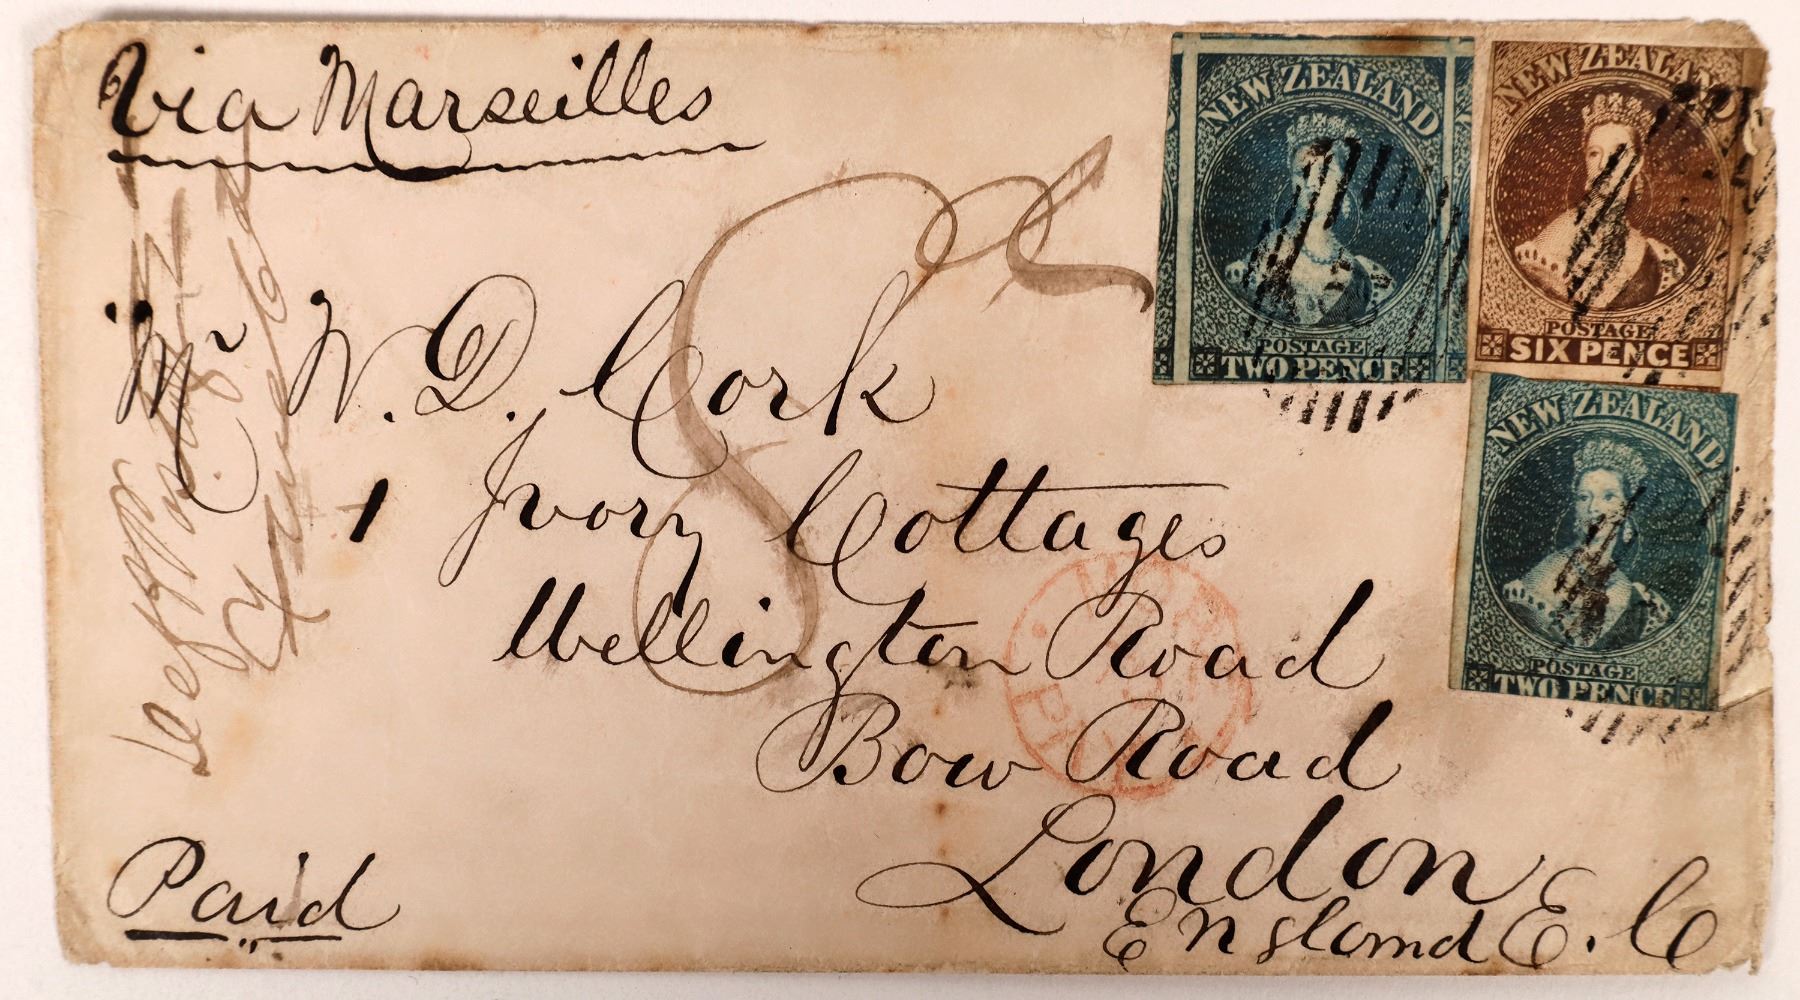 Via Marseilles
NEW ZEALAND
POSTAGE
TWO PENCE
NEW ZEALAND
POSTAGE
SIX PENCE
NEW ZEALAND
POSTAGE
TWO PENCE
8d
Mr W. D. Cork
1 Ivory Cottages
Wellington Road
Bow Road
London
England E. C
Paid